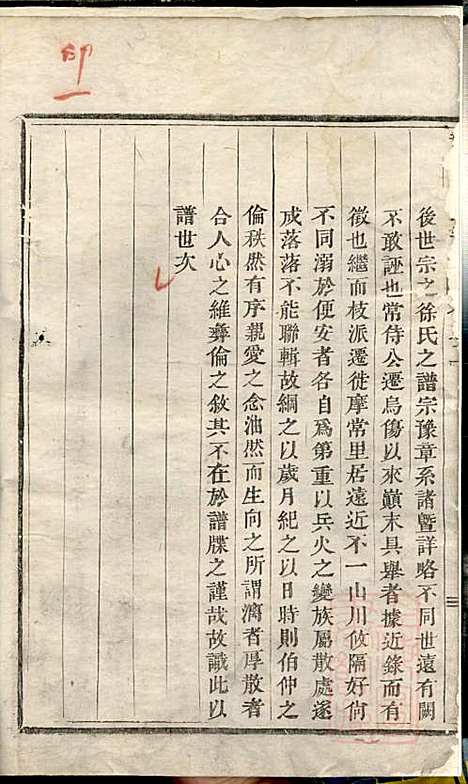 後世宗之徐氏之譜宗豫章系諸暨詳略不同世遠有闕
不敢誣也常侍公遷烏傷以來顛末具舉者據近錄而有
徵也繼而枝派遷徙靡常里居遠近不一山川攸隔好尙
不同溺於便安者各自爲第重以兵火之變族屬散處遂
成落落不能聯輯故綱之以歲月紀之以日時則伯仲之
倫秩然有序親愛之念油然而生向之所謂漓者厚散者
合人心之維彝倫之敘其不在於譜牒之謹哉故識此以
譜世次
印